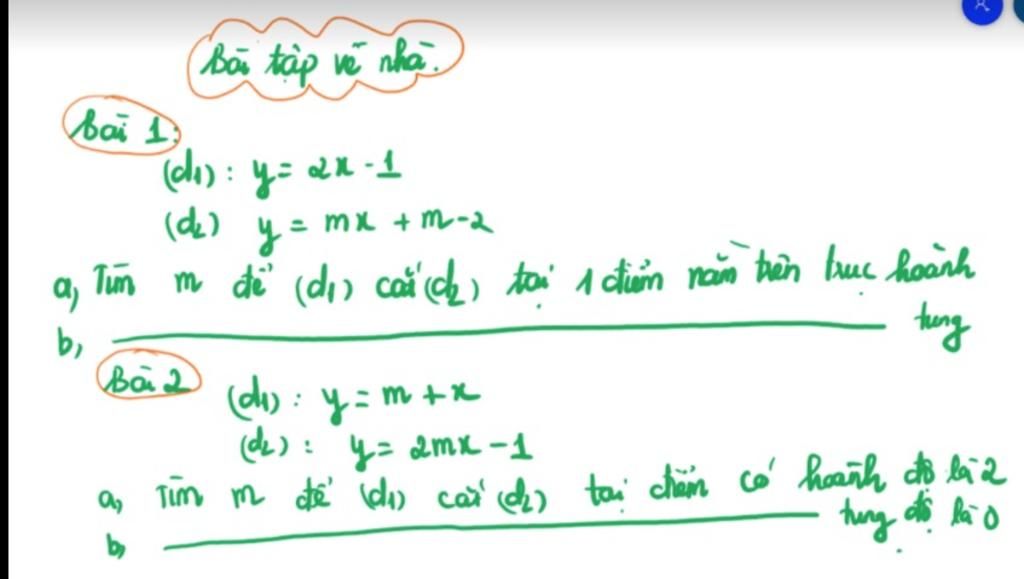 Bài tập về nhà.
Bài 1:
(d1) : y = 2x - 1
(d2) y = mx + m - 2
a, Tìm m để (d1) cắt (d2) tại 1 điểm nằm trên trục hoành
b, ──────── tung
Bài 2
(d1) : y = m + x
(d2) : y = 2mx - 1
a, Tìm m để (d1) cắt (d2) tại điểm có hoành độ là 2
b, ──────── tung độ là 0